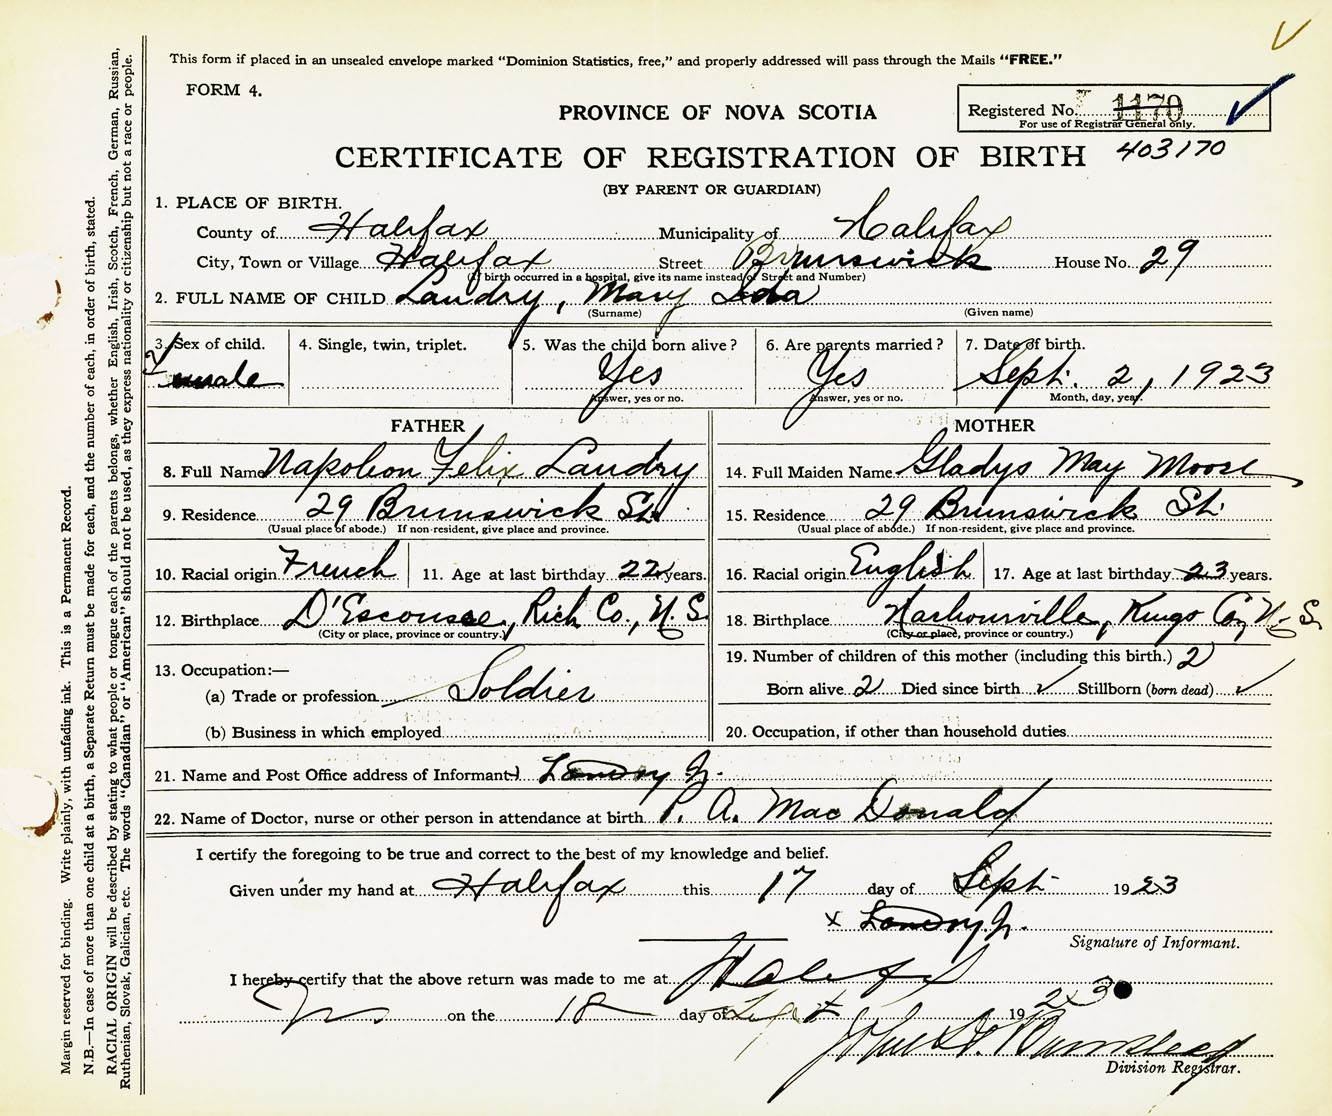 This form if placed in an unsealed envelope marked "Dominion Statistics, free," and properly addressed will pass through the Mails "FREE."
FORM 4.
PROVINCE OF NOVA SCOTIA
Registered No. 1170
For use of Registrar General only.
CERTIFICATE OF REGISTRATION OF BIRTH 403170
(BY PARENT OR GUARDIAN)
1. PLACE OF BIRTH.
County of Halifax Municipality of Halifax
City, Town or Village Halifax Street Brunswick House No. 29
(If birth occurred in a hospital, give its name instead of Street and Number)
2. FULL NAME OF CHILD Landry, Mary
(Surname) (Given name)
3. Sex of child. 4. Single, twin, triplet. 5. Was the child born alive? 6. Are parents married? 7. Date of birth.
Yes Yes Sept. 2, 1923
Answer, yes or no. Answer, yes or no. Month, day, year.
FATHER MOTHER
8. Full Name Napoleon Felix Landry 14. Full Maiden Name Gladys May
9. Residence 29 Brunswick St. 15. Residence 29 Brunswick St.
(Usual place of abode.) If non-resident, give place and province. (Usual place of abode.) If non-resident, give place and province.
10. Racial origin French 11. Age at last birthday 22 years. 16. Racial origin English 17. Age at last birthday 23 years.
12. Birthplace D'Escousse, Rich Co., N.S. 18. Birthplace Harbourville, Kings Co., N.S.
(City or place, province or country.) (City or place, province or country.)
19. Number of children of this mother (including this birth.) 2
13. Occupation:—
(a) Trade or profession Soldier Born alive 2 Died since birth ✓ Stillborn (born dead) ✓
(b) Business in which employed 20. Occupation, if other than household duties
21. Name and Post Office address of Informant
22. Name of Doctor, nurse or other person in attendance at birth P. A. MacDonald
I certify the foregoing to be true and correct to the best of my knowledge and belief.
Given under my hand at Halifax this 17 day of Sept. 1923
x
Signature of Informant.
I hereby certify that the above return was made to me at Halifax
NS on the 18 day of Sept 1923
Division Registrar.
Margin reserved for binding. Write plainly, with unfading ink. This is a Permanent Record.
N.B.—In case of more than one child at a birth, a Separate Return must be made for each, and the number of each, in order of birth, stated.
RACIAL ORIGIN will be described by stating to what people or tongue each of the parents belongs, whether English, Irish, Scotch, French, German, Russian,
Ruthenian, Slovak, Galician, etc. The words "Canadian" or "American" should not be used, as they express nationality or citizenship but not a race or people.